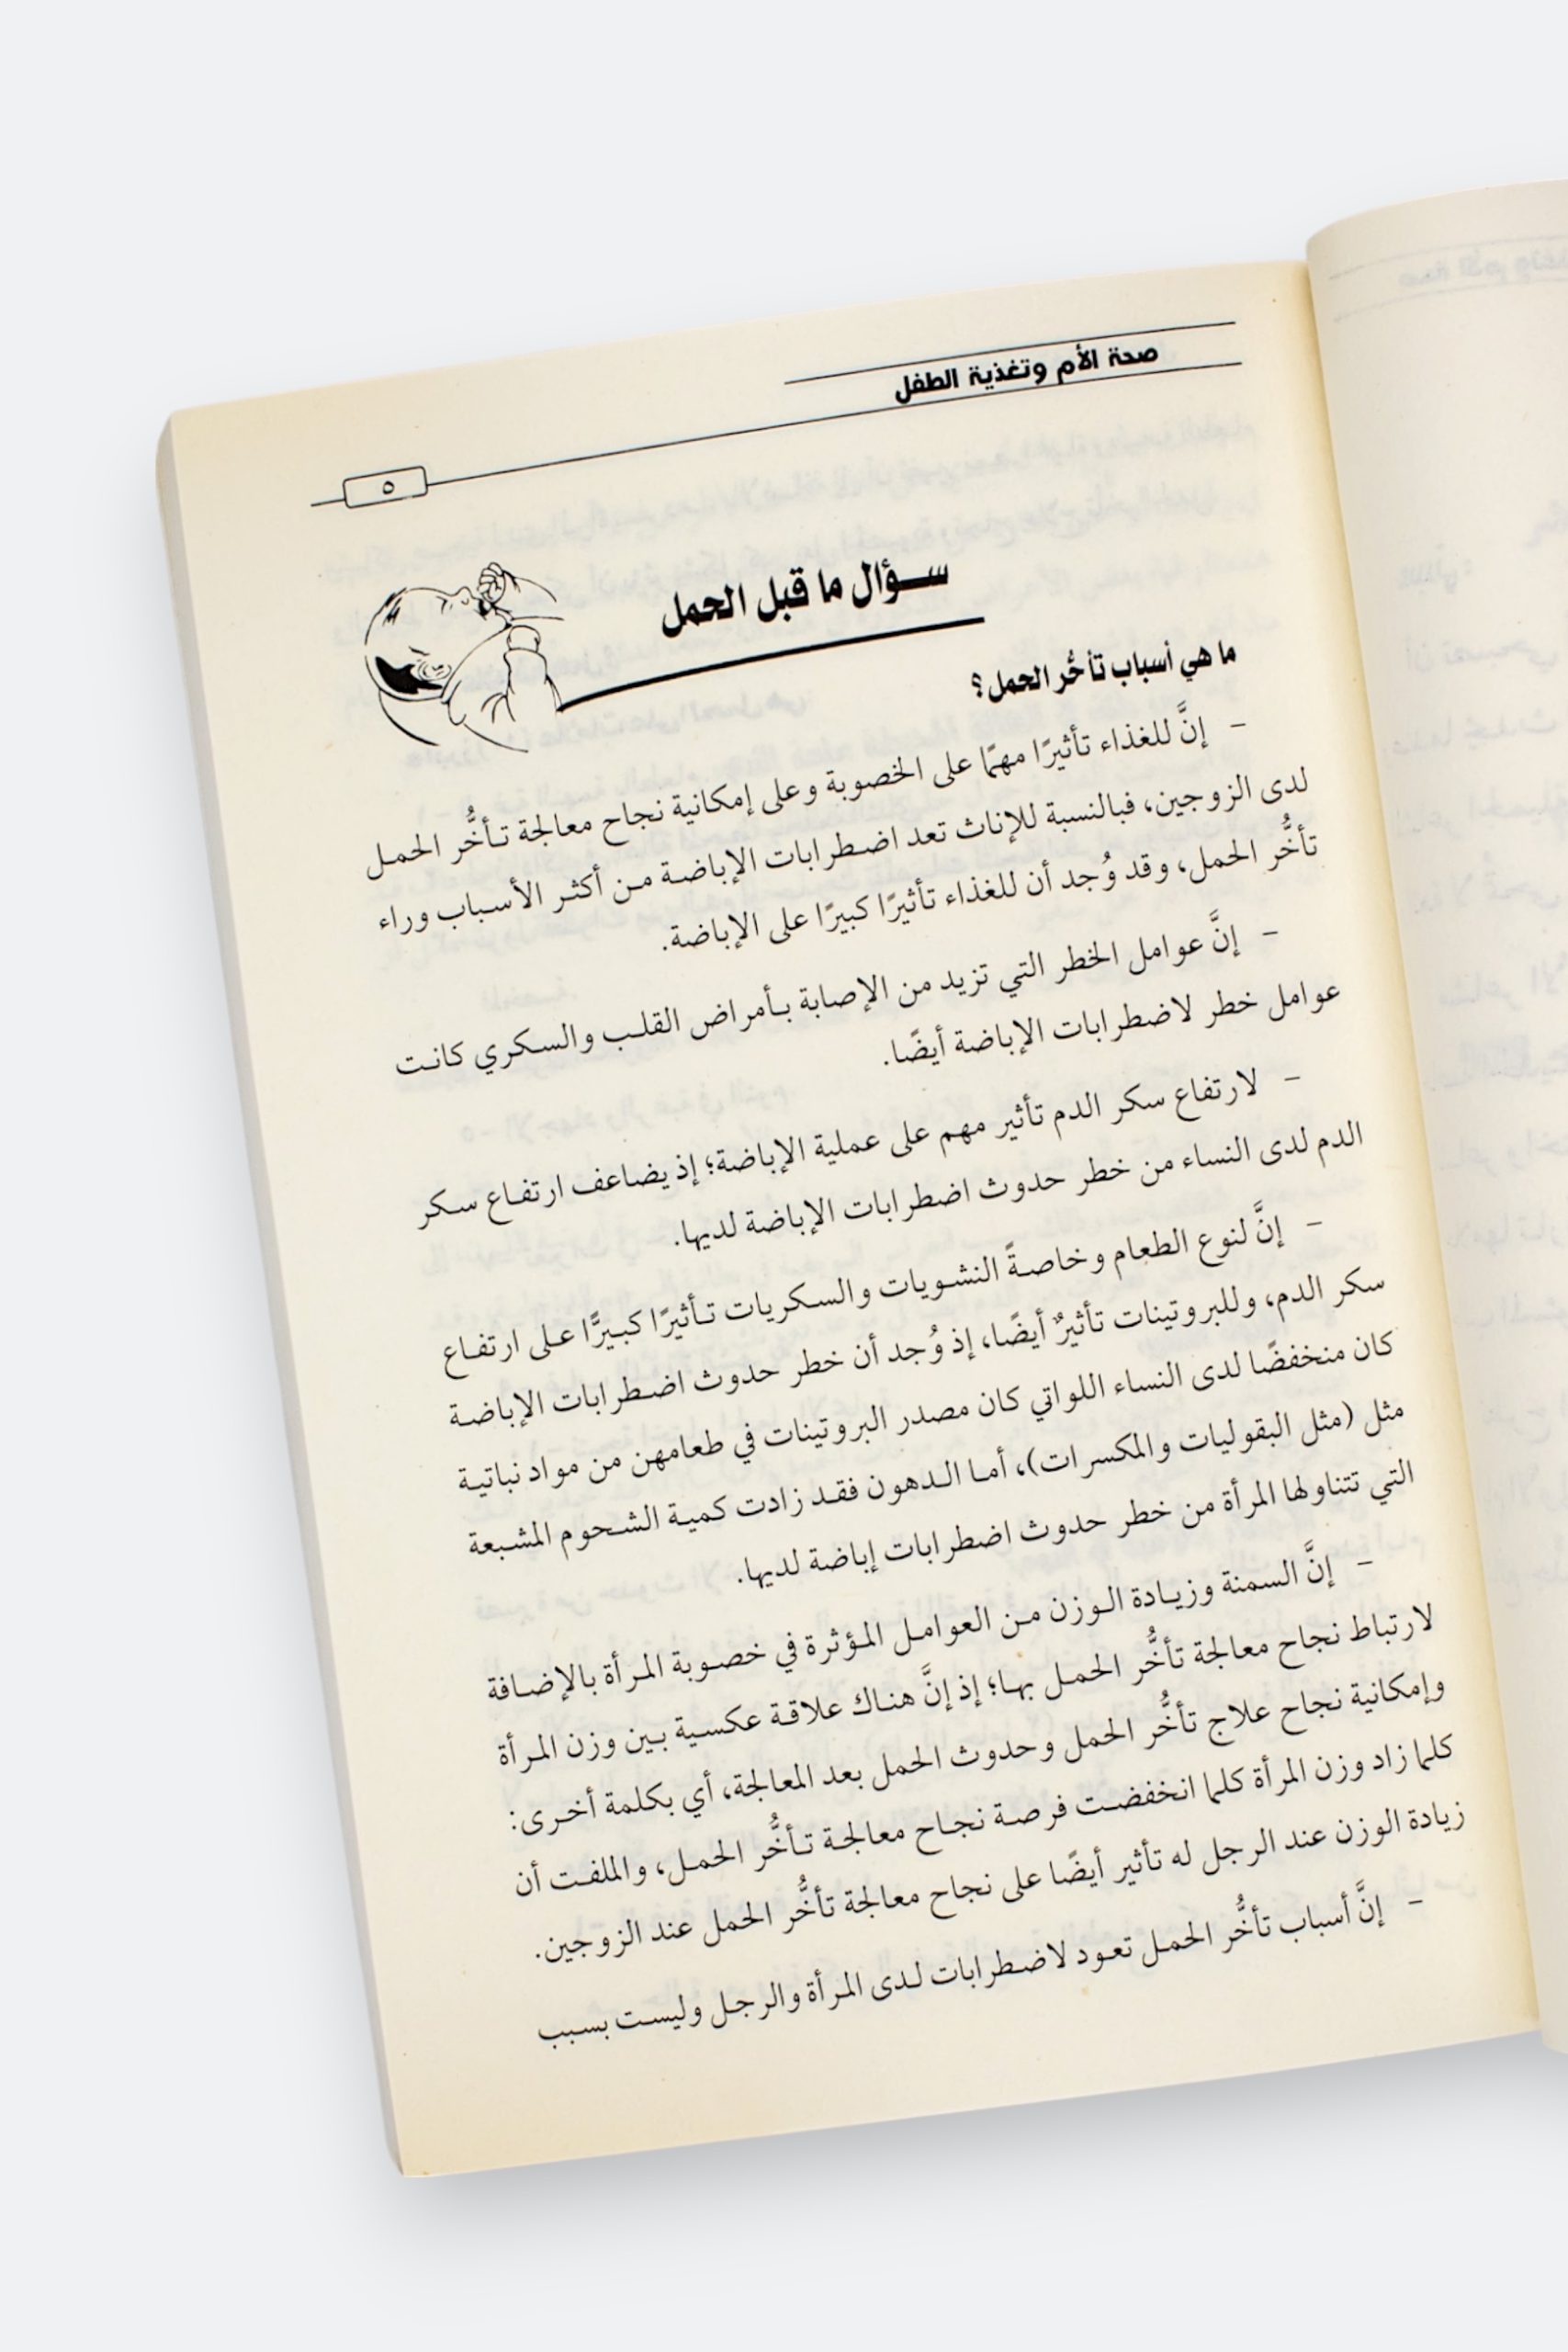 صحة الأم وتغذية الطفل
٥
ســؤال ما قبل الحمل
ما هي أسباب تأخُّر الحمل؟
- إنَّ للغذاء تأثيرًا مهمًا على الخصوبة وعلى إمكانية نجاح معالجة تأخُّر الحمل
لدى الزوجين، فبالنسبة للإناث تعد اضطرابات الإباضة من أكثر الأسباب وراء
تأخُّر الحمل، وقد وُجد أن للغذاء تأثيرًا كبيرًا على الإباضة.
- إنَّ عوامل الخطر التي تزيد من الإصابة بأمراض القلب والسكري كانت
عوامل خطر لاضطرابات الإباضة أيضًا.
- لارتفاع سكر الدم تأثير مهم على عملية الإباضة؛ إذ يضاعف ارتفاع سكر
الدم لدى النساء من خطر حدوث اضطرابات الإباضة لديها.
- إنَّ لنوع الطعام وخاصةً النشويات والسكريات تأثيرًا كبيرًّا على ارتفاع
سكر الدم، وللبروتينات تأثيرٌ أيضًا، إذ وُجد أن خطر حدوث اضطرابات الإباضة
كان منخفضًا لدى النساء اللواتي كان مصدر البروتينات في طعامهن من مواد نباتية
مثل (مثل البقوليات والمكسرات)، أما الدهون فقد زادت كمية الشحوم المشبعة
التي تتناولها المرأة من خطر حدوث اضطرابات إباضة لديها.
- إنَّ السمنة وزيادة الوزن من العوامل المؤثرة في خصوبة المرأة بالإضافة
لارتباط نجاح معالجة تأخُّر الحمل بها؛ إذ إنَّ هناك علاقة عكسية بين وزن المرأة
وإمكانية نجاح علاج تأخُّر الحمل وحدوث الحمل بعد المعالجة، أي بكلمة أخرى:
كلما زاد وزن المرأة كلما انخفضت فرصة نجاح معالجة تأخُّر الحمل، والملفت أن
زيادة الوزن عند الرجل له تأثير أيضًا على نجاح معالجة تأخُّر الحمل عند الزوجين.
- إنَّ أسباب تأخُّر الحمل تعود لاضطرابات لدى المرأة والرجل وليست بسبب